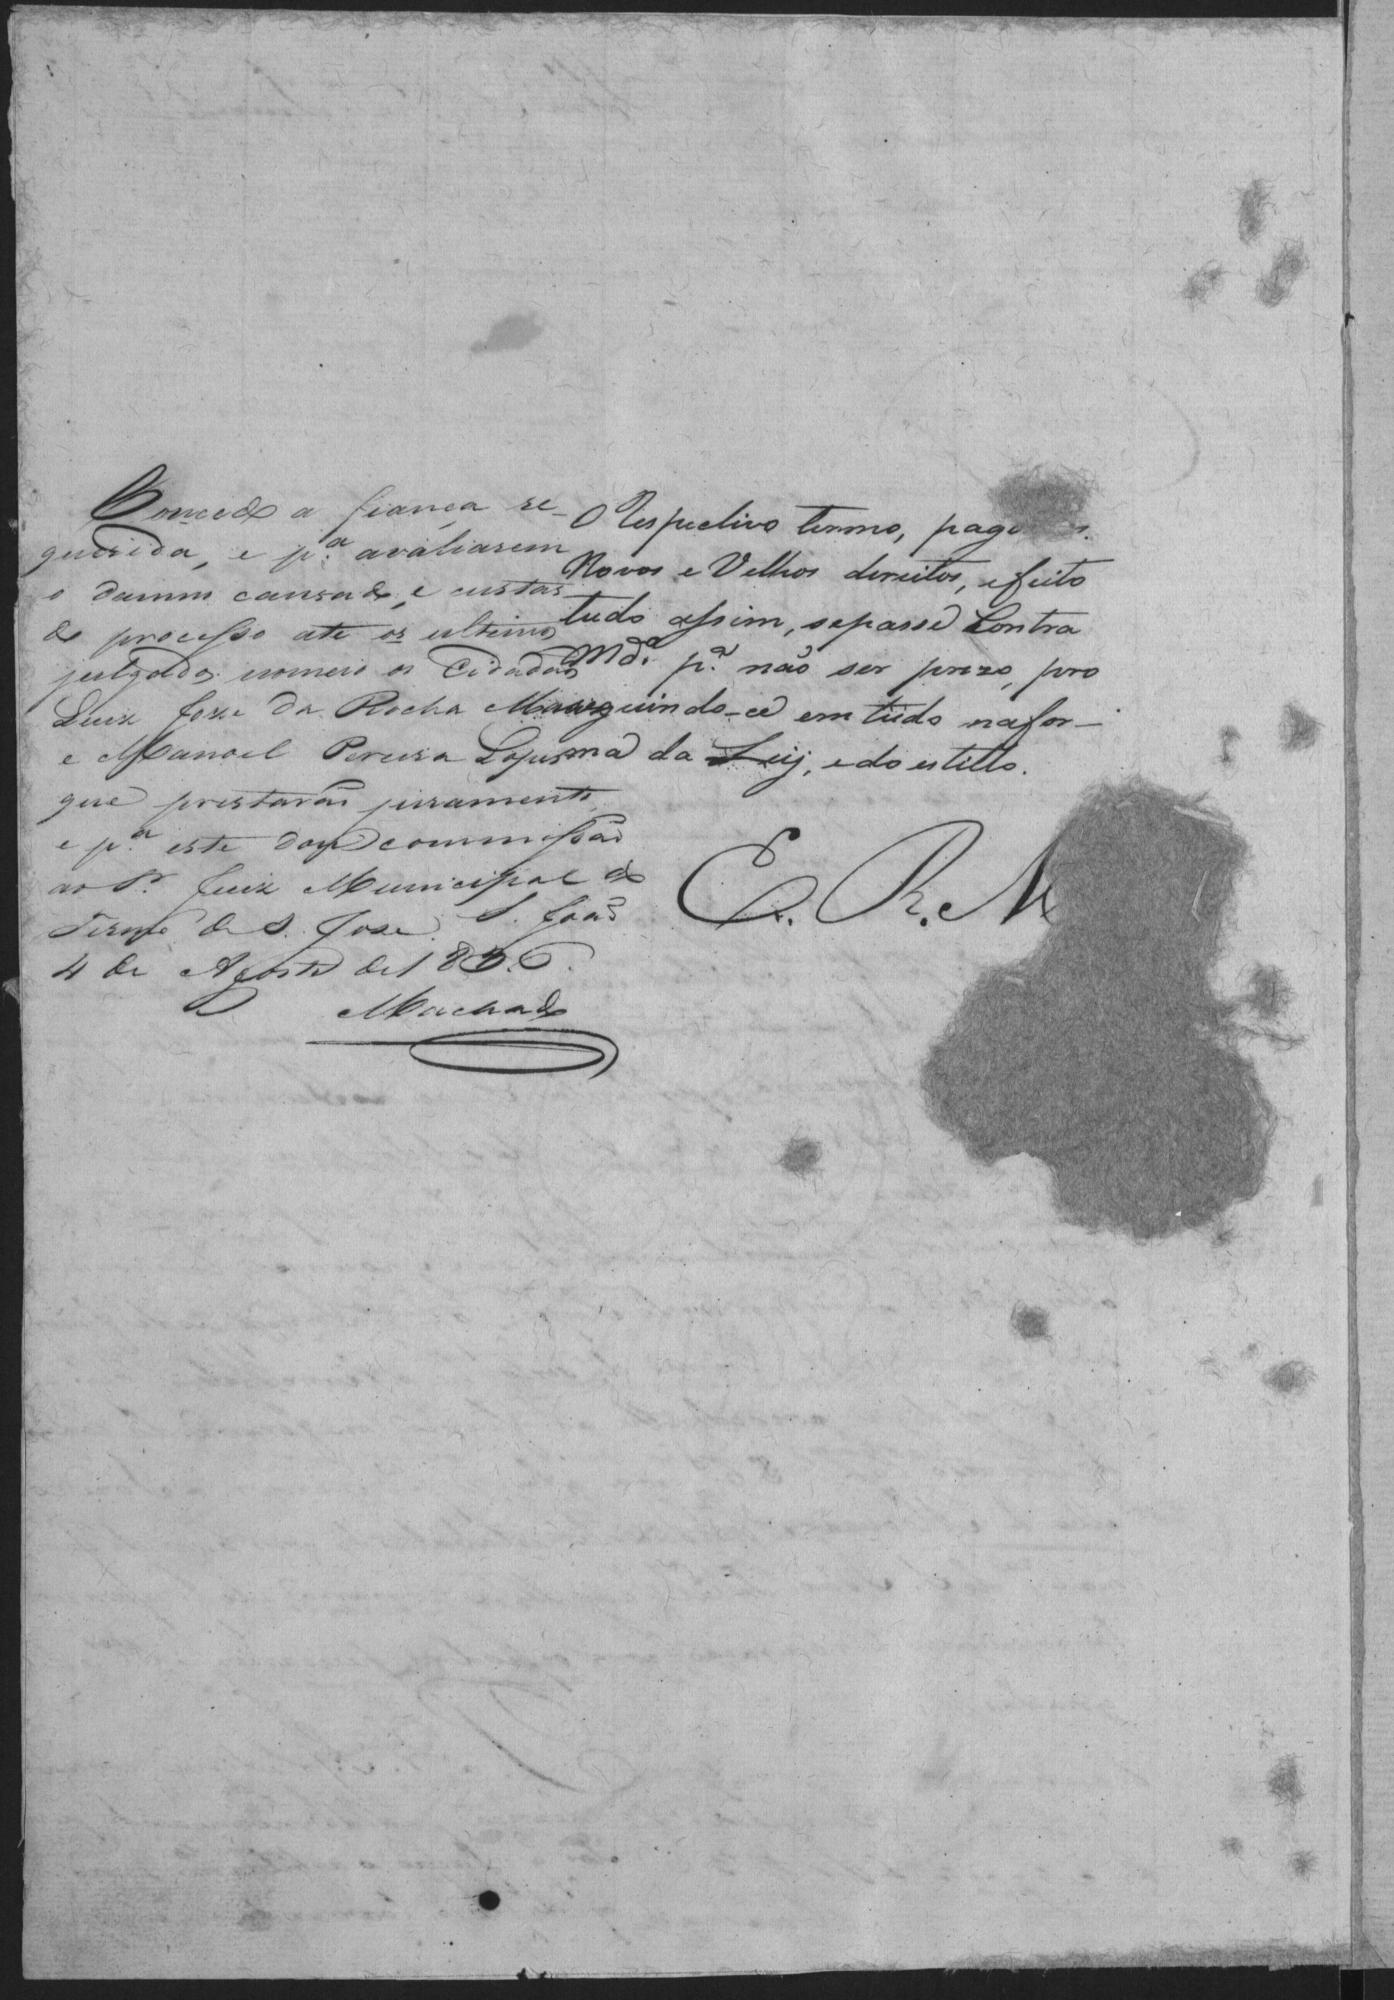 Concedo a fiança re-
querida, e p.ª avaliarem
o damno causado, e custas
do processo ate os ultimos
julgados nomeio os Cidadãos
Luiz Jose da Rocha
e Manoel Pereira Lopes
que prestarão juramento,
e p.ª este dou commissão
ao Sr. Juiz Municipal do
Termo de S. Jose. S. João
4 de Agosto de 1836.
Machado
O Respectivo termo, pagos os
Novos e Velhos direitos, e feito
tudo assim, sepasse Contra
Md.º p.ª não ser prezo, pro
seguindo-ce em tudo nafor-
ma da Leij, e do estillo.
E. R. M